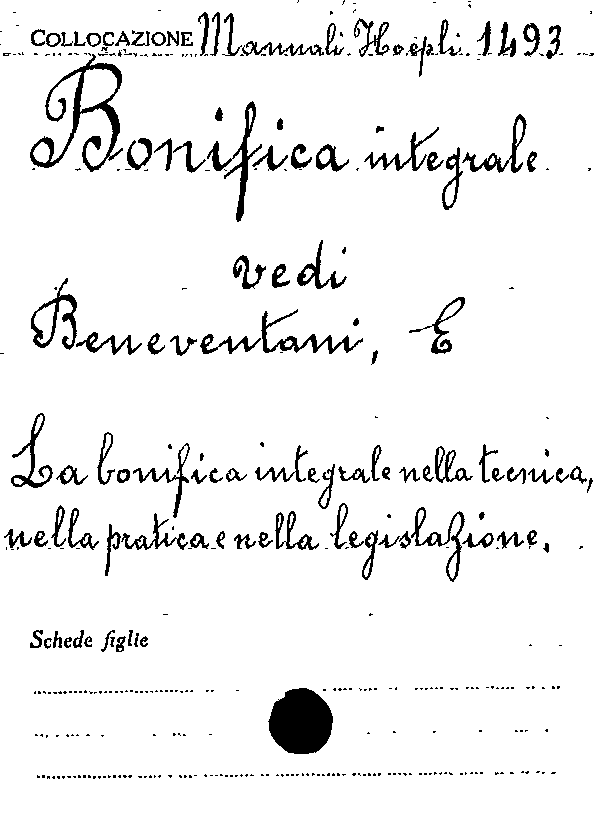 COLLOCAZIONE Manuali Hoepli 1493
Bonifica integrale
vedi
Beneventani, E
La bonifica integrale nella tecnica,
nella pratica e nella legislazione.
Schede figlie